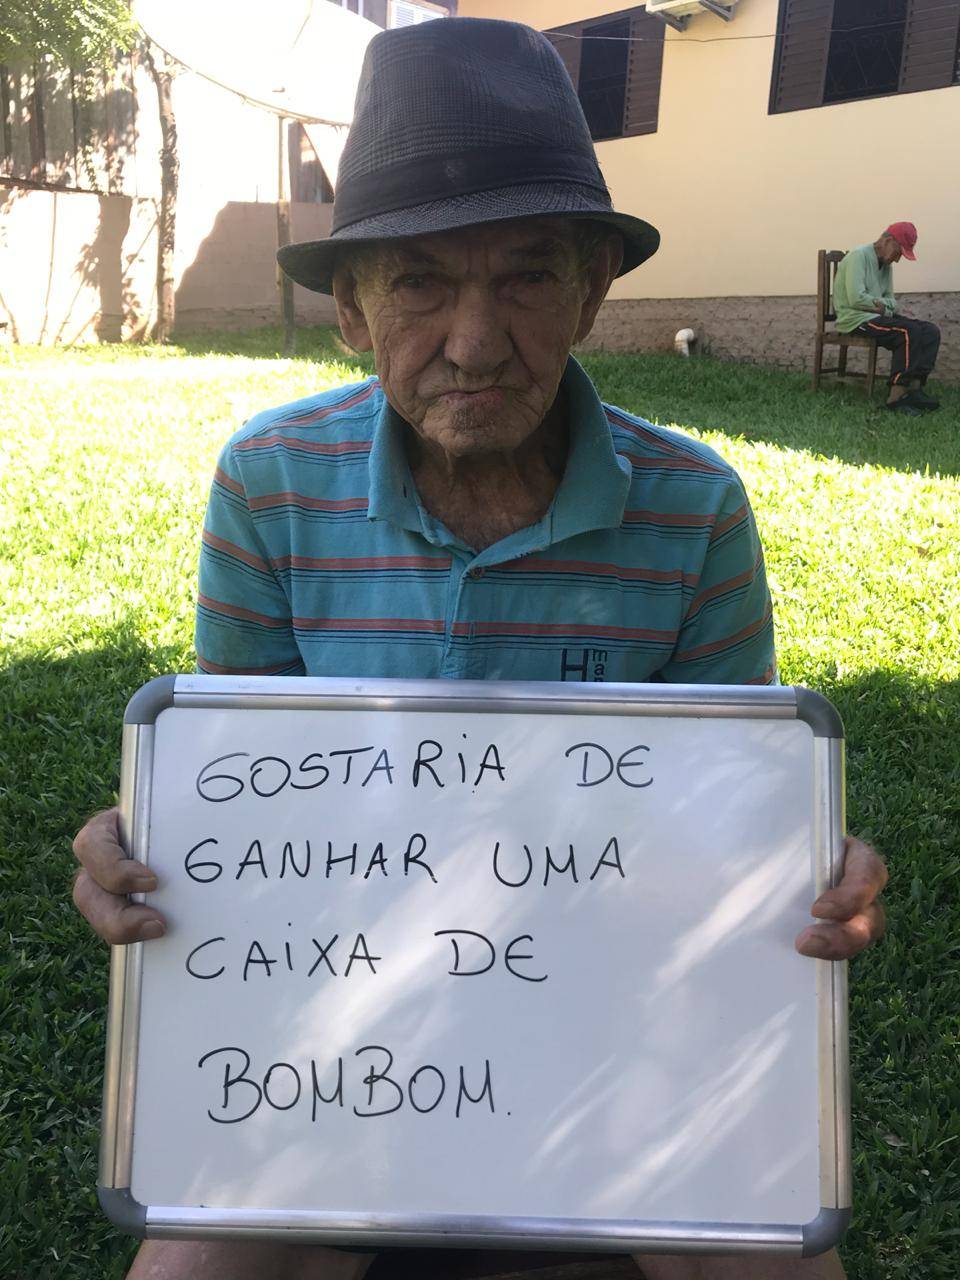 H
man
GOSTARIA DE
GANHAR UMA
CAIXA DE
BOMBOM.